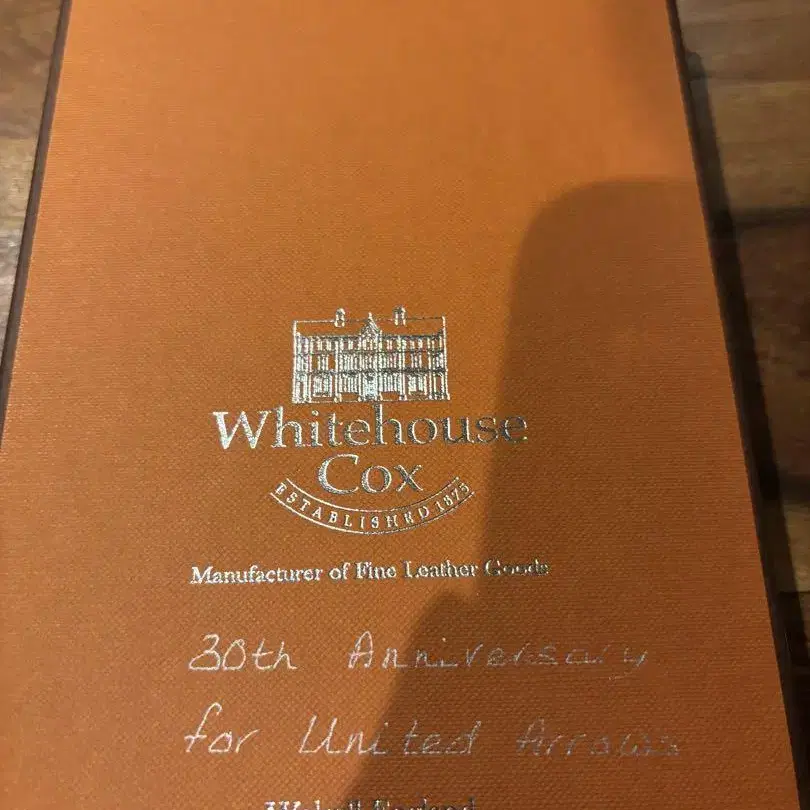 Whitehouse
Cox
ESTABLISHED 1875
Manufacturer of Fine Leather Goods
30th Anniversary
for United Arrows
Walsall England